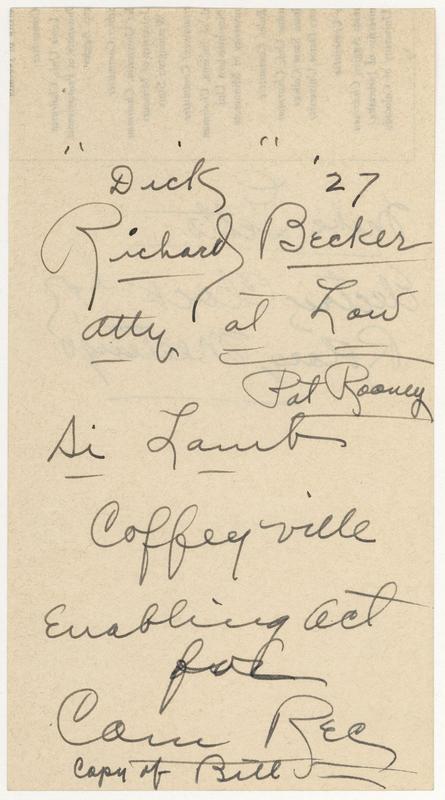 "Dick" '27
Richard Becker
atty at Law
Pat Rooney
Si Lamb
Coffeyville
Enabling Act
for
Com Rec
Copy of Bill